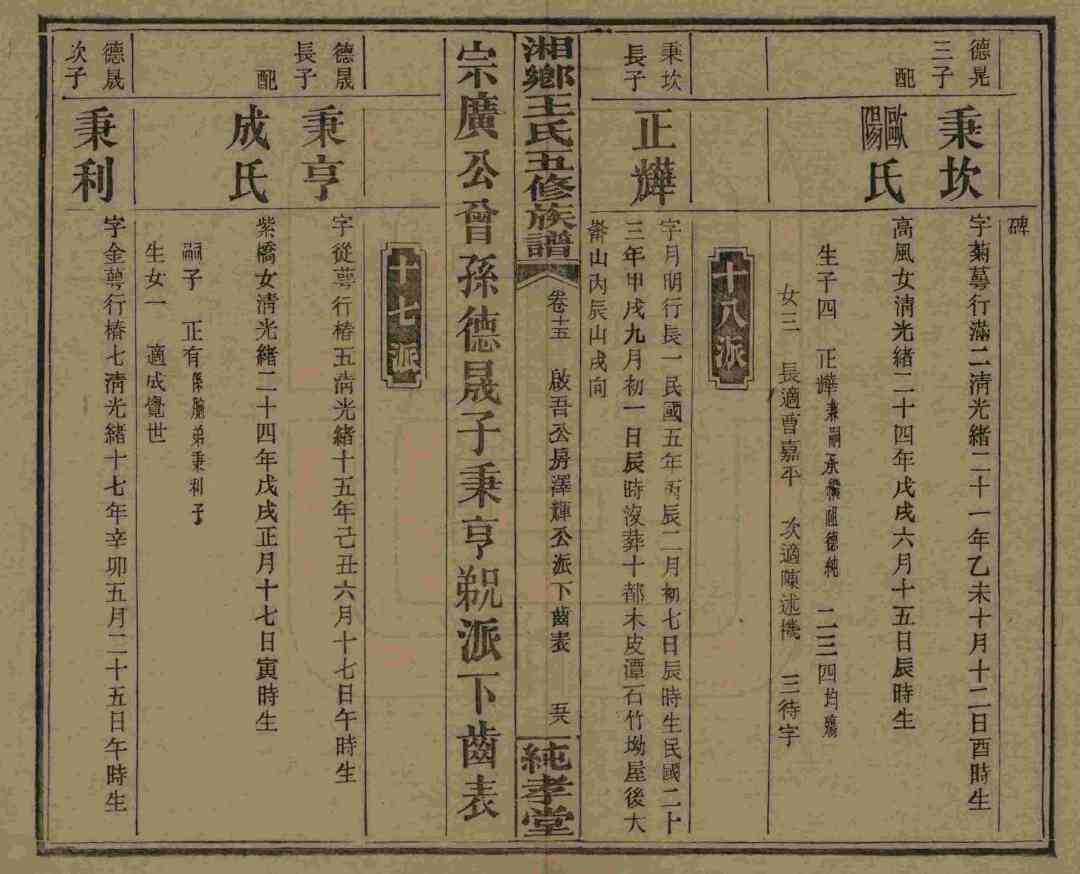 碑
德晃三子
秉坎
字菊蕚行滿二清光緒二十一年乙未十月十二日酉時生
配
歐陽氏
高風女清光緒二十四年戊戌六月十五日辰時生
生子四 正燡兼嗣承繼祖德純 二三四均殤
女三 長適曹嘉平 次適陳述機 三待字
十八派
秉坎長子
正燡
字月明行長一民國五年丙辰二月初七日辰時生民國二十
三年甲戌九月初一日辰時沒葬十都木皮潭石竹坳屋後大
嵛山丙辰山戌向
湘鄉王氏五修族譜
卷十五 啟吾公房澤輝公派下齒表 五八
純孝堂
宗廣公曾孫德晟子秉亨貎派下齒表
十七派
德晟長子
秉亨
字從蕚行椿五清光緒十五年己丑六月十七日午時生
配
成氏
紫橋女清光緒二十四年戊戌正月十七日寅時生
嗣子 正有係胞弟秉利子
生女一 適成覺世
德晟次子
秉利
字金蕚行椿七清光緒十七年辛卯五月二十五日午時生